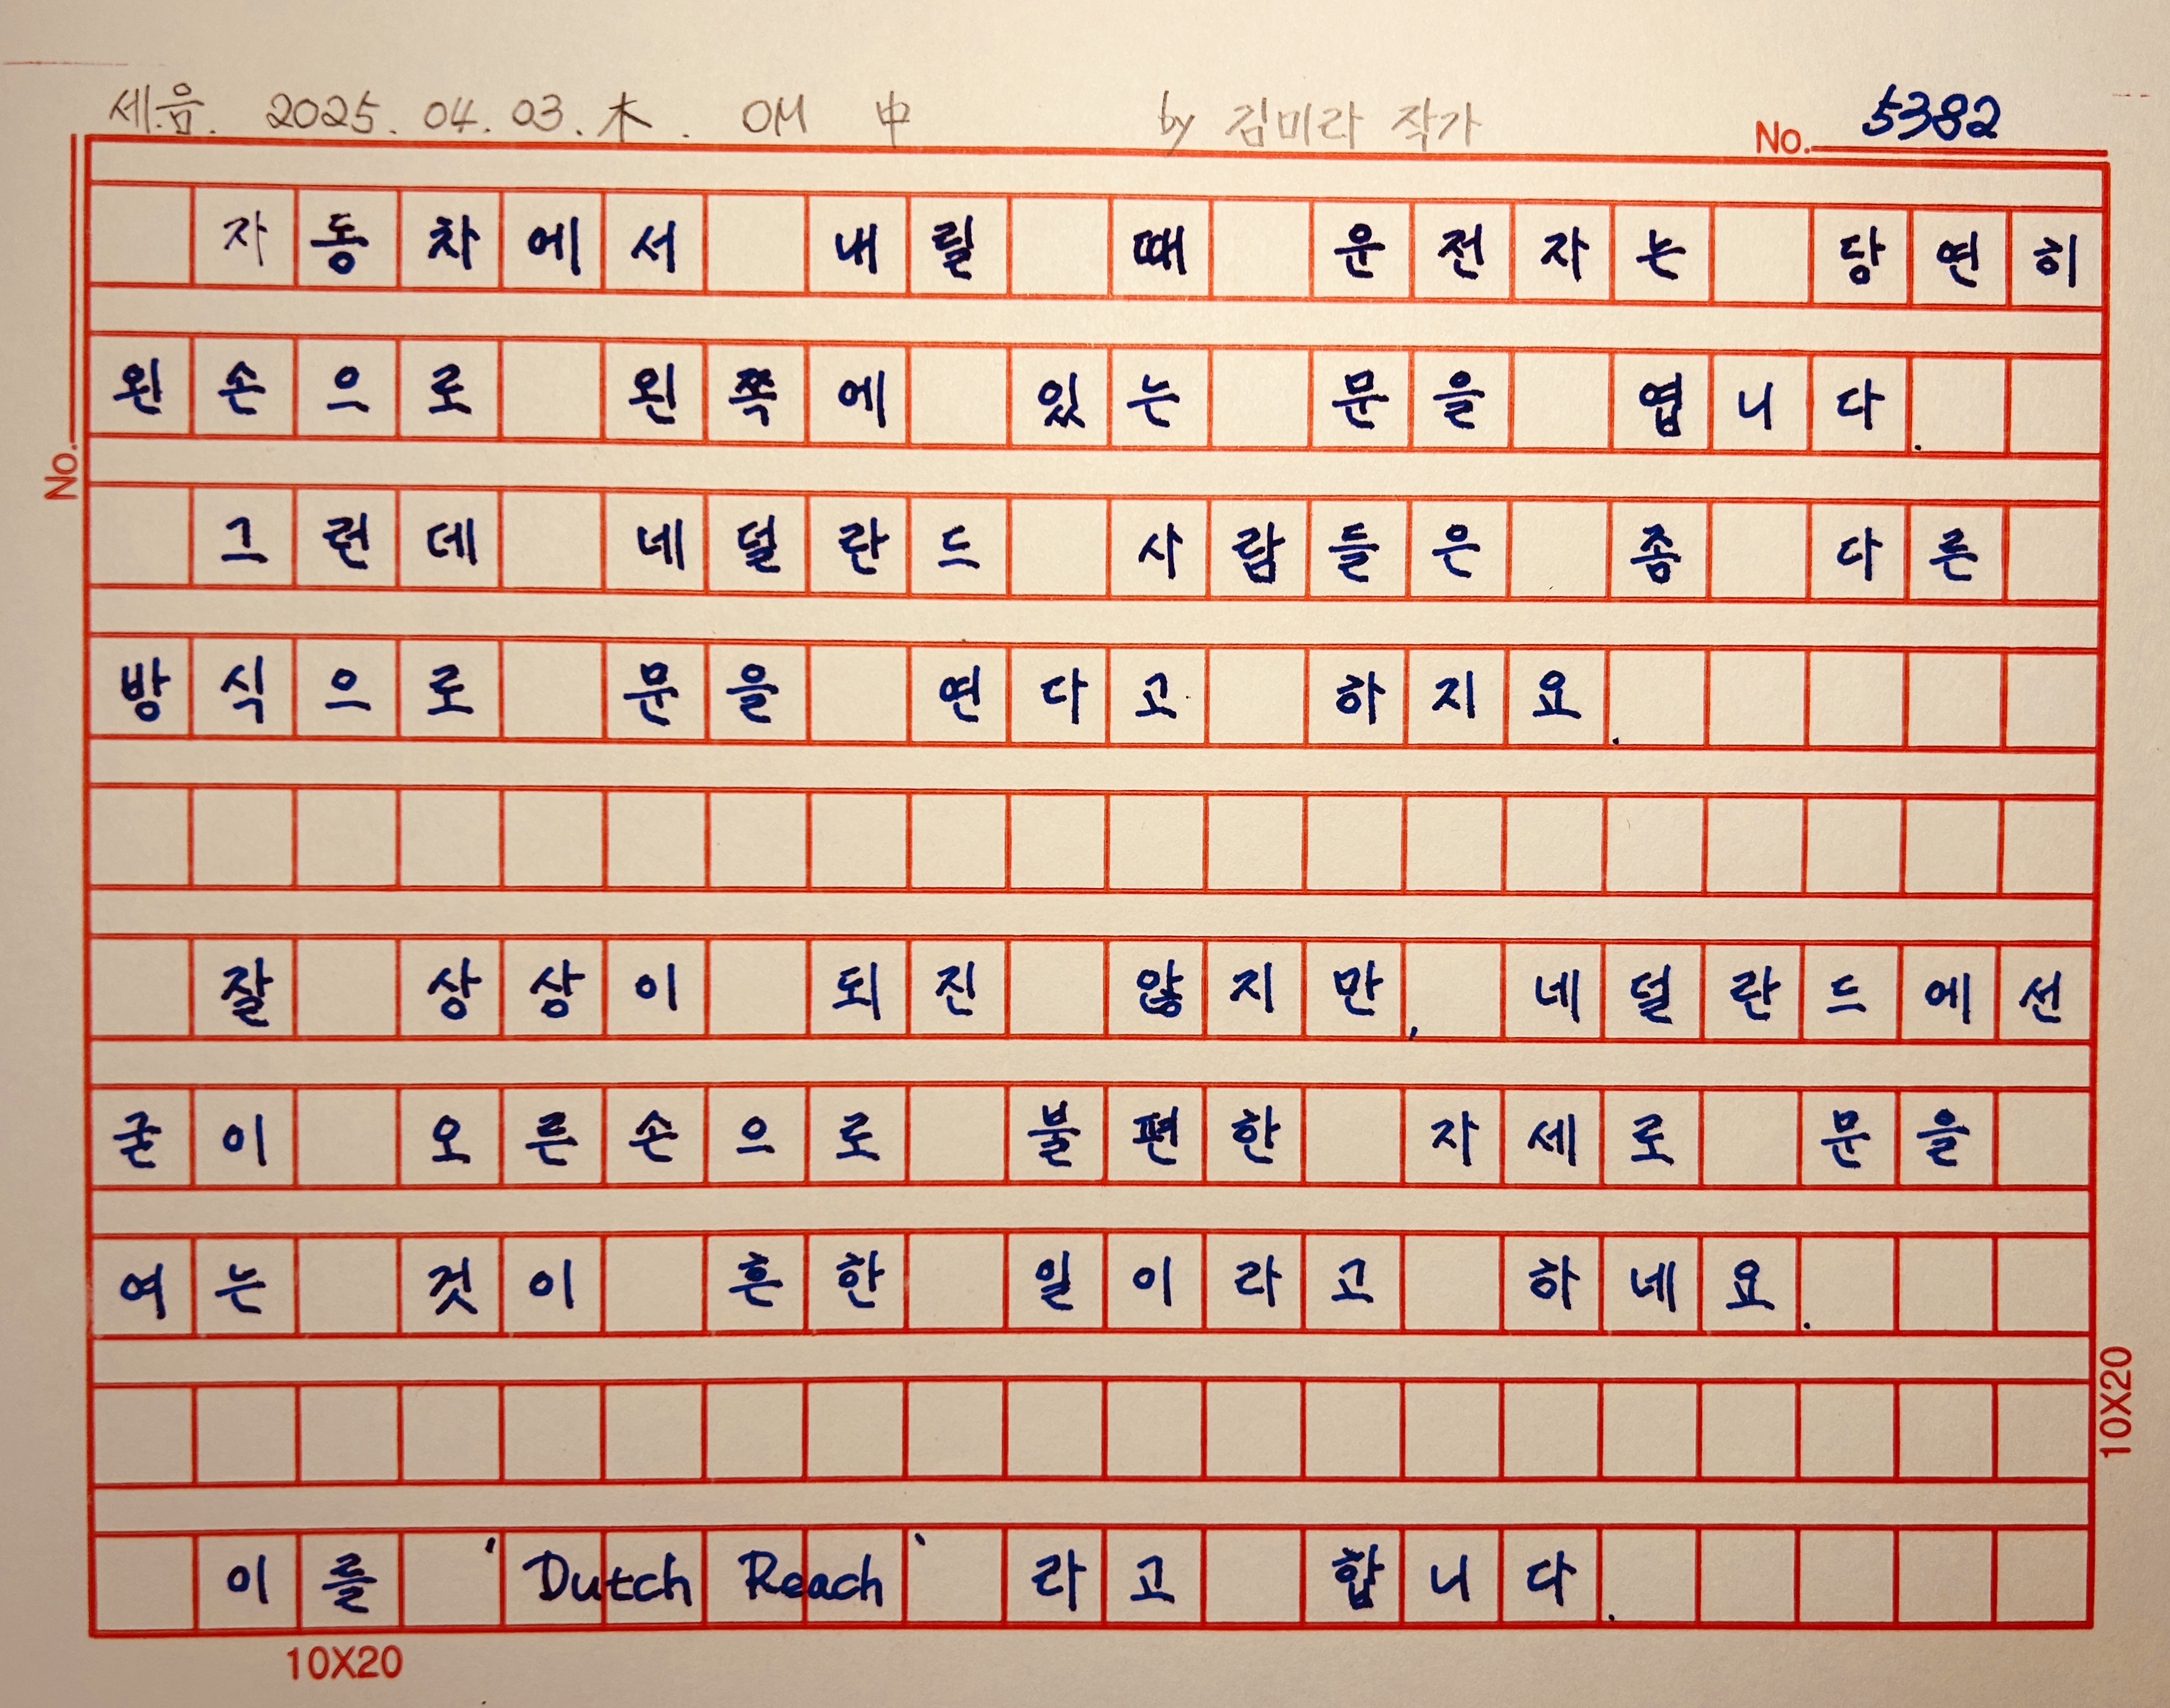 세음. 2025. 04. 03. 木. OM 中 by 김미라 작가 No. 5382
자동차에서 내릴 때 운전자는 당연히
왼손으로 왼쪽에 있는 문을 엽니다.
No.
그런데 네덜란드 사람들은 좀 다른
방식으로 문을 연다고 하지요.
잘 상상이 되진 않지만, 네덜란드에선
굳이 오른손으로 불편한 자세로 문을
여는 것이 흔한 일이라고 하네요.
10X20
이를 'Dutch Reach' 라고 합니다.
10X20